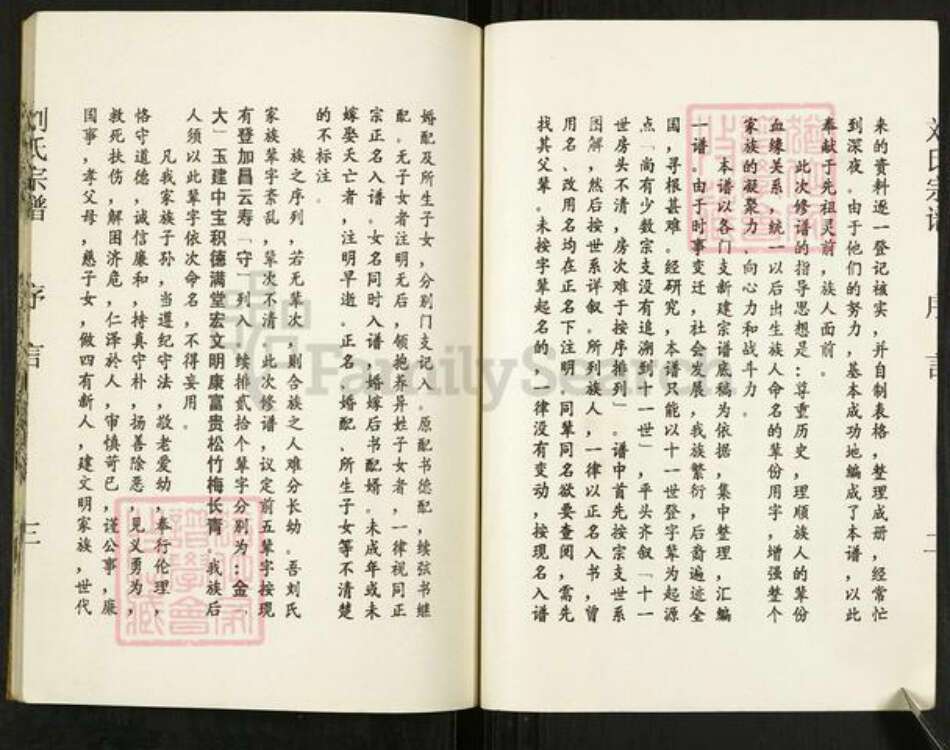 刘氏宗谱 序言 二
来的资料逐一登记核实，并自制表格，整理成册，经常忙
到深夜。由于他们的努力，基本成功地编成了本谱，以此
奉献于先祖灵前，族人面前。
此次修谱的指导思想是：尊重历史，理顺族人的辈份
血缘关系，统一以后出生族人命名的辈份用字，增强整个
家族的凝聚力、向心力和战斗力。
本谱以各门支新建宗谱底稿为依据，集中整理，汇编
一谱。由于时事变迁，社会发展，我族繁衍，后裔遍迹全
国，寻根甚难。经研究，本谱只能以十一世登字辈为起源
点「尚有少数宗支没有追溯到十一世」，平头齐叙「十一
世房头不清，房次难于按序排列」。谱中首先按宗支世系
图解，然后按世系详叙。所列族人，一律以正名入书，曾
用名、改用名均在正名下注明，同辈同名欲要查阅，需先
找其父辈。未按字辈起名的，一律没有变动，按现名入谱
婚配及所生子女，分别门支记入。原配书德配，续弦书继
配。无子女者注明无后，领抱养异姓子女者，一律视同正
宗正名入谱。女名同时入谱，婚嫁后书配婿。未成年或未
嫁娶夭亡者，注明早逝。正名、婚配、所生子女等不清楚
的不标注。
族之序列，若无辈次，则合族之人难分长幼。吾刘氏
家族辈字紊乱，辈次不清，此次修谱，议定前五辈字按现
有登加昌云寿「守」列入，续排贰拾个辈字分别为：金「
大」玉建中宝积德满堂宏文明康富贵松竹梅长青。我族后
人须以此辈字依次命名，不得妄用。
凡我家族子孙，当遵纪守法，敬老爱幼，奉行伦理，
恪守道德，诚信廉和，持真守朴，扬善除恶，见义勇为，
救死扶伤，解困济危，仁泽於人，审慎苛己，谨公事，廉
国事，孝父母，慈子女，做四有新人，建文明家族，世代
刘氏宗谱 序言 三
FamilySearch